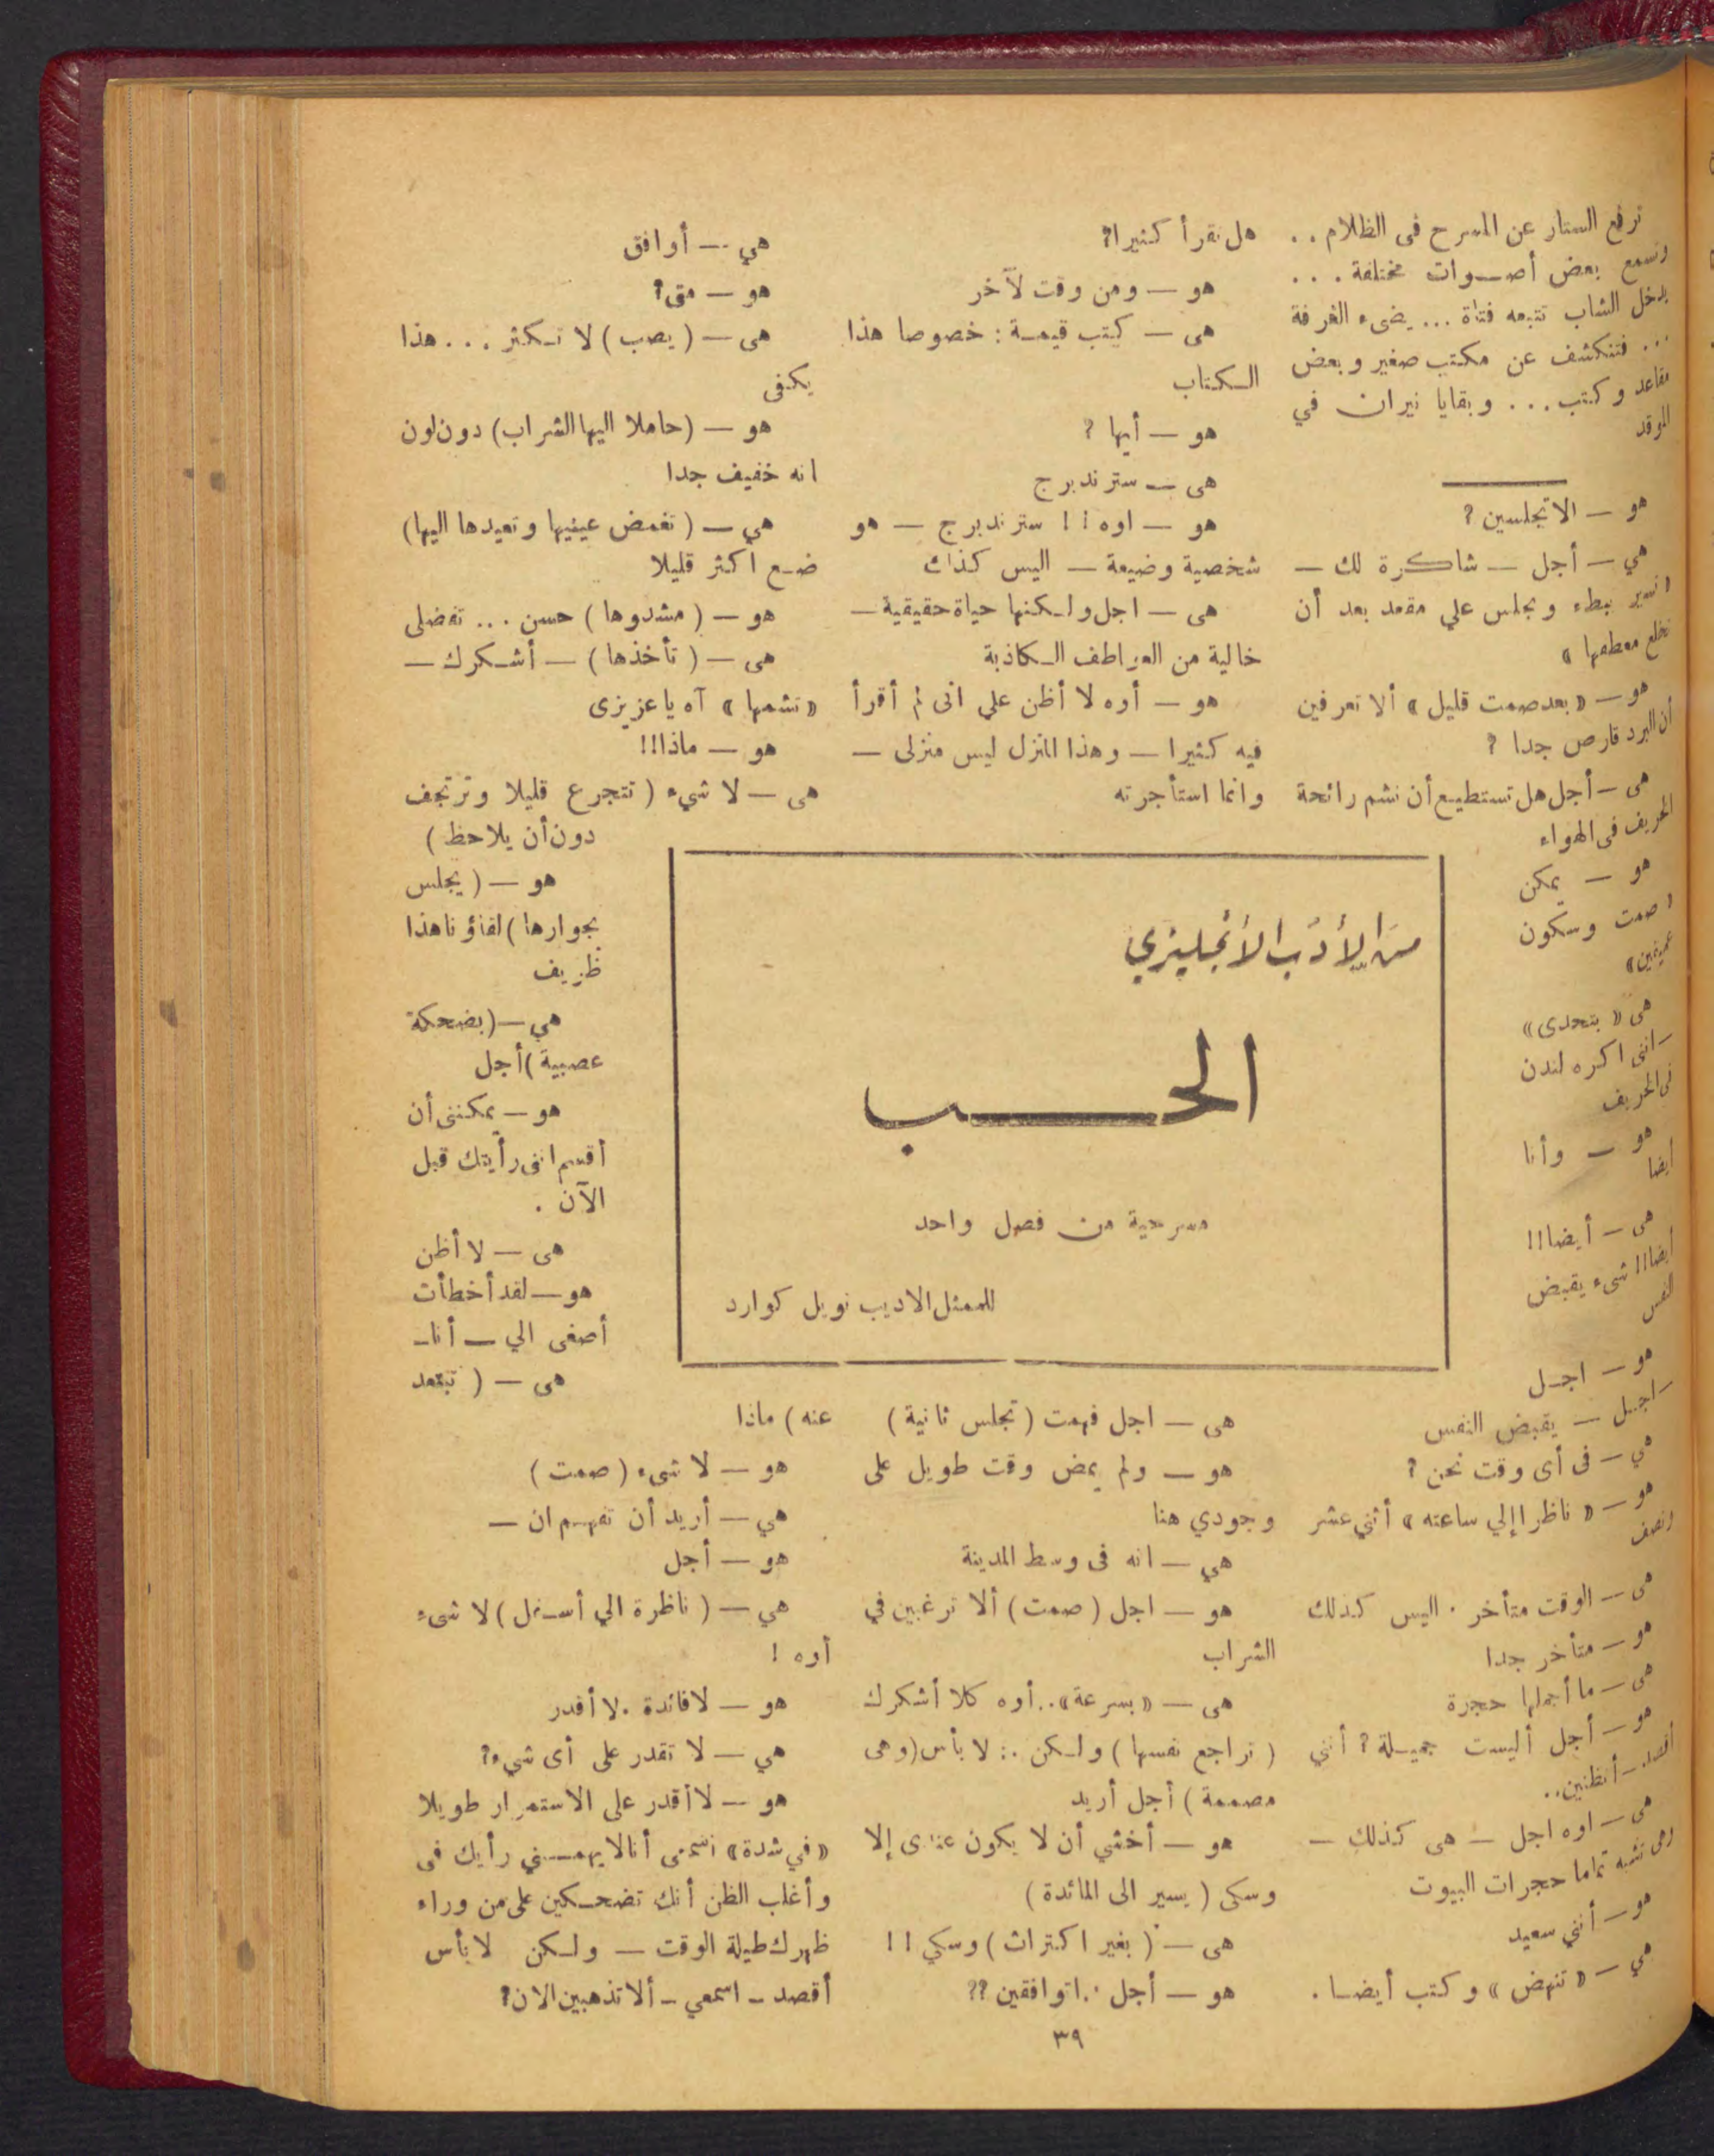 ترفع الستار عن المسرح فى الظلام . .
وتسمع بعض أصـوات مختلفة . . .
يدخل الشاب تتبعه فتاة ... يضىء الغرفة
... فتنكشف عن مكتب صغير وبعض
مقاعد وكتب ... وبقايا نيران في
الموقد
هو — الا تجلسين ?
هي — أجل — شاكرة لك —
تسير ببطء وتجلس علي مقعد بعد أن
تخلع معطفها »
هو — « بعد صمت قليل » ألا تعرفين
أن البرد قارص جدا ?
هى — أجل هل تستطيع أن نشم رائحة
الخريف فى الهواء
هو — يمكن
صمت وسكون
عميقين »
هى « بتحدى »
— اننى اكره لندن
فى الخريف
هو — وأنا
أيضا
هى — أيضا !!!
أيضا !!! شىء يقبض
النفس
هو — اجـل
— اجـل — يقبض النفس
هي — فى أى وقت نحن ?
هو — « ناظرا إلي ساعته » أثني عشر
ونصف
هى — الوقت متأخر . اليس كذلك
هو — متأخر جدا
هى — ما أجملها حجرة
هو — أجل أليست جميـلة ? أنني
أقصد — أتظنين ..
هى — اوه اجل — هى كذلك —
وهى تشبه تماما حجرات البيوت
هو — أنني سعيد
هي — « تنهض » وكتب أيضـا .
هل تقرأ كثيرا ?
هو — ومن وقت لآخر
هى — كتب قيمـة : خصوصا هذا
الـكتاب
هو — أيها ?
هى — سترندبرج
هو — اوه !! سترندبرج — هو
شخصية وضيعة — اليس كذاك
هى — اجل ولـكنها حياة حقيقية —
خالية من العواطف الـكاذبة
هو — أوه لا أظن علي انى لم أقرأ
فيه كثيرا — وهذا المنزل ليس منزلى —
وانما استأجرته
من الأدب الأنجليزي
الحــب
مسرحية من فصل واحد
للممثل الاديب نويل كوارد
هى — اجل فهمت ( تجلس ثانية )
هو — ولم يمض وقت طويل على
وجودي هنا
هي — انه فى وسط المدينة
هو — اجل ( صمت ) ألا ترغبين في
الشراب
هى — « بسرعة » .. أوه كلا أشكرك
( تراجع نفسها ) ولـكن .: لا بأس ( وهى
مصممة ) أجل أريد
هو — أخشي أن لا يكون عندى إلا
وسكى ( يسير الى المائدة )
هى — ( بغير اكتراث ) وسكي !!
هو — أجل . اتوافقين ??
هي — أوافق
هو — متى ?
هى — ( يصب ) لا تـكثر . . . هذا
يكفى
هو — ( حاملا اليها الشراب ) دون لون
انه خفيف جدا
هي — ( تغمض عينيها وتعيدها اليها )
ضـع اكثر قليلا
هو — ( مشدوها ) حسن ... تفضلى
هى — ( تأخذها ) — أشـكرك —
« تشمها » آه يا عزيزى
هو — ماذا !!!
هى — لا شيء ( تتجرع قليلا وترتجف
دون أن يلاحظ )
هو — ( يجلس
بجوارها ) لقاؤنا هذا
ظريف
هي — ( بضحكة
عصبية ) أجل
هو — يمكننى أن
أقسم انى رأيتك قبل
الآن .
هى — لا أظن
هو — لقد أخطأت
أصغى الي — أنا —
هى — ( تبتعد
عنه ) ماذا
هو — لا شىء ( صمت )
هي — أريد أن تفهـم ان —
هو — أجل
هي — ( ناظرة الي أسـفل ) لا شىء
أوه !
هو — لا فائدة . لا أقدر
هي — لا تقدر على أى شيء ?
هو — لا أقدر على الاستمرار طويلا
« في شدة » اسمعى أنا لا يهمـني رأيك فى
وأغلب الظن أنك تضحـكين على من وراء
ظهرك طيلة الوقت — ولـكن لا بأس
أقصد — اسمعي — ألا تذهبين الان ?
٣٩